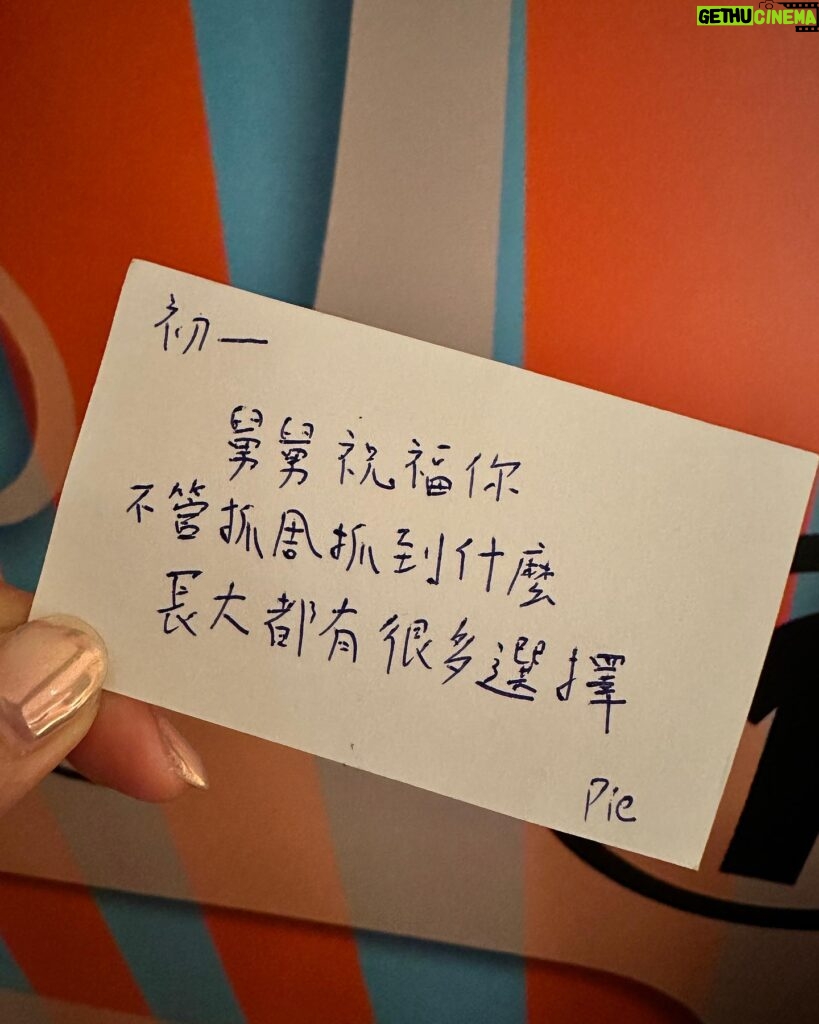 GETHUCINEMA
初一
舅舅祝福你
不管抓周抓到什麼
長大都有很多選擇
Pie